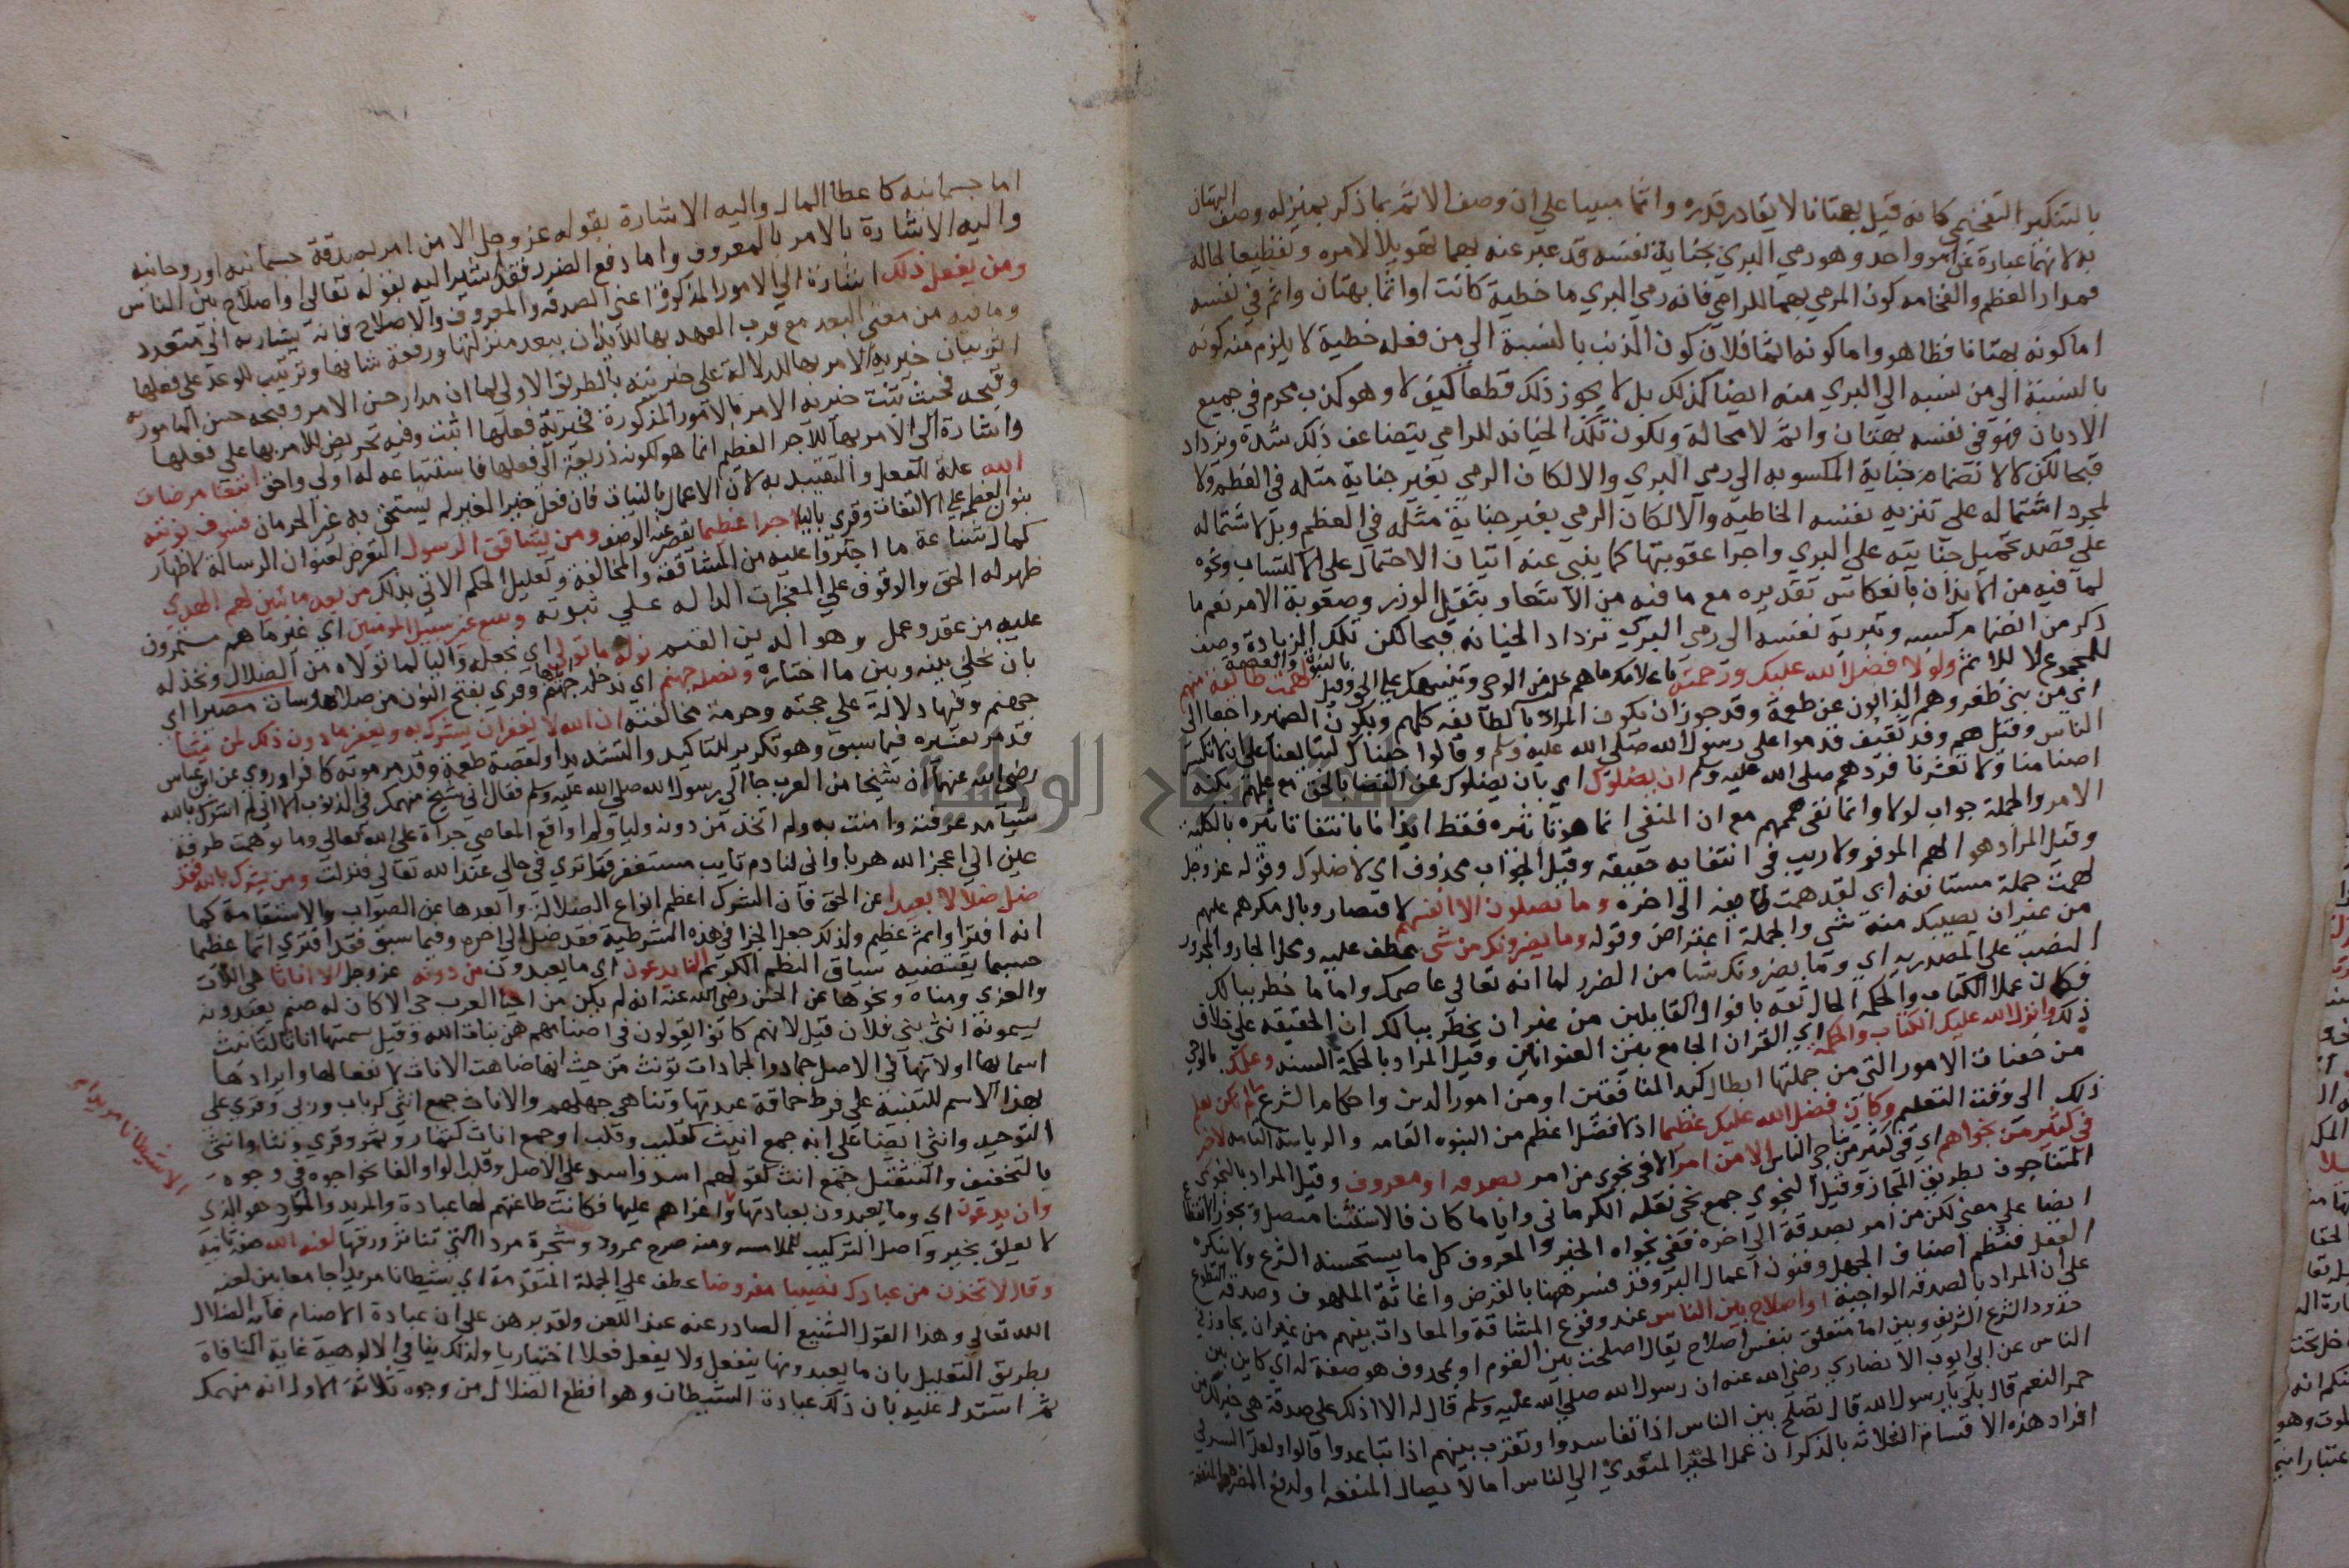 بالتنكير التفخيمي كانه قيل بهتانا لا يقادر قدره واثما مبينا علي ان وصف الاثم بما ذكر بمنزله وصف البهتان
به لانهما عبارة عن امر واحد وهو رمي البري بجناية نفسه قد عبر عنه بهما تهويلا لامره وتفظيعا لحاله
فمدار العظم والفخامه كون المرمي بهما للرامي فانه رمي البري ما خطية كانت او اثما بهتان واثم في نفسه
اما كونه بهتانا فظاهر واما كونه اثما فلان كون الذنب بالنسبة الي من فعله خطية لا يلزم منه كونه
بالنسبة الي من نسبه الي البري منه ايضا كذلك بل لا يجوز ذلك قطعا كيف لا وهو كذب محرم في جميع
الاديان فهو في نفسه بهتان واثم لا محالة وبكون تلك الجناية للرامي يتضاعف ذلك شدة ويزداد
قبحا لكن لا لانضمام جناية المكسوبه الي رمي البري والا لكان الرمي بغير جناية مثله في العظم ولا
لمجرد اشتماله علي تنزيه نفسه الخاطية والا لكان الرمي بغير جناية مثله في العظم وبل لاشتماله
علي قصد تحميل جنايته علي البري واجرا عقوبتها كما ينبي عنه اتيان الاحتمال علي الاكتساب ونحوه
لما فيه من الايذان بانعكاس تقديره مع ما فيه من الاشعار بثقل الوزر وصعوبة الامر نعم بما
ذكر من انضمام كسبه وتبرية نفسه الي رمي البري تزداد الجناية قبحا لكن تلك الزيادة وصف
للمجموع لا للاثم ولولا فضل الله عليك ورحمته باعلامك ما هم عليه من الوحي وتنبيهك علي الحق وقيل بالنبوة والعصمة لهمت طائفة منهم
اي من بني ظفر وهم الذابون عن طعمة وقد جوز ان يكون المراد بالطائفة كلهم ويكون الضمير راجعا الي
الناس وقيل هم وفد ثقيف قدموا علي رسول الله صلي الله عليه وسلم وقالوا جئناك لنبايعك علي ان لا تكسر
اصنامنا ولا تعشرنا فردهم صلي الله عليه وسلم ان يضلوك اي بان يضلوك عن القضا بالحق مع علمهم بكنه
الامر والجملة جواب لولا وانما نفي همهم مع ان المنفي انما هو تاثيره فقط ايذانا بانتفا تاثيره بالكلية
وقيل المراد هو الهم الموثر ولا ريب في انتفايه حقيقة وقيل الجواب محذوف اي لاضلوك وقوله عز وجل
لهمت جملة مستانفه اي لقد همت طايفه الي اخره وما يضلون الا انفسهم لاقتصار وبال مكرهم عليهم
من غير ان يصيبك منه شي والجملة اعتراض وقوله وما يضرونك من شي عطف عليه ومحل الجار والمجرور
النصب علي المصدرية اي وما يضرونك شيا من الضرر لما انه تعالي عاصمك واما ما خطر ببالك
فكان عملا
ذلك وانزل الله عليك الكتاب والحكمة اي القران الجامع بين العنوانين وقيل المراد بالحكمة السنه وعلمك بالوحي
من خفيات الامور التي من جملتها ابطال كيد المنافقين او من امور الدين واحكام الشرع ما لم تكن تعلم
ذلك الي وقت التعليم وكان فضل الله عليك عظيما اذ لا فضل اعظم من النبوه العامه والرياسة التامة لا خير
في كثير من نجواهم اي في كثير من تناجي الناس الا من امر الا في نجوي من امر بصدقه او معروف وقيل المراد بالنجوي
المتناجون بطريق المجاز وقيل النجوي جمع نجي نقله الكرماني وايا ما كان فالاستثنا متصل ويجوز الانقطاع
ايضا علي معني لكن من امر بصدقة الي اخره ففي نجواه الخير والمعروف كل ما يستحسنه الشرع ولا ينكره
العقل فينتظم اصناف الجميل وفنون اعمال البر وقد فسر ههنا بالقرض واغاثة الملهوف وصدقة التطوع
علي ان المراد بالصدقه الواجبة او اصلاح بين الناس عند وقوع المشاقة والمعادات بينهم من غير ان يجاوز في
حدود الشرع الشريف وبين اما متعلق بنفس اصلاح يقال اصلحت بين القوم او بمحذوف هو صفة له اي كاين بين
الناس عن ابي ايوب الانصاري رضي الله عنه ان رسول الله صلي الله عليه وسلم قال له الا ادلك علي صدقة هي خير لك من
حمر النعم قال بلي يا رسول الله قال تصلح بين الناس اذا تفاسدوا وتقرب بينهم اذا تباعدوا قالوا ولعل السر في
افراد هذه الاقسام الثلاثه بالذكر ان عمل الخير المتعدي الي الناس اما لايصال المنفعة او لدفع المضره والمنفعة
اما جسمانيه كاعطا المال واليه الاشارة بقوله عز وجل الا من امر بصدقة جسمانيه او روحانيه
واليه الاشارة بالامر بالمعروف واما دفع الضرر فقد اشير اليه بقوله تعالي او اصلاح بين الناس
ومن يفعل ذلك اشارة الي الامور المذكورة اعني الصدقه والمعروف والاصلاح فانه يشار به الي متعدد
وما فيه من معني البعد مع قرب العهد بها للايذان ببعد منزلتها ورفعة شانها وترتيب الوعد علي فعلها
اثر بيان خيرية الامر بها للدلالة علي خيريته بالطريق الاولي لما ان مدار حسن الامر وقبحه حسن المامور به
وقبحه فحيث ثبتت خيرية الامر بالامور المذكورة فخيرية فعلها اثبت وفيه تحريض للامر بها علي فعلها
واشارة الي الامر بها للاجر العظيم انما هو لكونه ذريعة الي فعلها فاستتباعه له اولي واحق ابتغا مرضات
الله علة للفعل والتقييد به لان الاعمال بالنيات فان فعل خيرا لغيره لم يستحق به غير الحرمان فسوف نوتيه
بنون العظمة علي الالتفات وقري باليا اجرا عظيما يقصر عنه الوصف ومن يشاقق الرسول التعرض لعنوان الرسالة لاظهار
كمال شناعة ما اجتروا عليه من المشاققة والمخالفة وتعليل الحكم الاتي بذلك من بعد ما تبين لهم الهدي
ظهر له الحق والوقوف علي المعجزات الداله علي نبوته ويتبع غير سبيل المومنين اي غير ما هم مستمرون
عليه من عقد وعمل وهو الدين القيم نوله ما تولي اي نجعله واليا لما تولاه من الضلال ونخذله
بان نخلي بينه وبين ما اختاره ونصله جهنم اي ندخله اياها وقري بفتح النون من صلاه وسات مصيرا اي
جهنم وفيها دلالة علي حجته وحرمة مخالفته ان الله لا يغفر ان يشرك به ويغفر ما دون ذلك لمن يشا
قد مر تفسيره فيما سبق وهو تكرير للتاكيد والتشديد او لقصة طعمة وقد مر موته كافرا وروي عن ابن عباس
رضي الله عنهما ان شيخا من العرب جا الي رسول الله صلي الله عليه وسلم فقال اني شيخ منهمك في الذنوب الا اني لم اشرك بالله
شيا مد عرفته وامنت به ولم اتخذ من دونه وليا ولم اواقع المعاصي جراة علي الله تعالي وما توهمت طرفة
عين اني اعجز الله هربا واني لنادم تايب مستغفر فما تري في حالي عند الله تعالي فنزلت ومن يشرك بالله فقد
ضل ضلالا بعيدا عن الحق فان الشرك اعظم انواع الضلالة وابعدها عن الصواب والاستقامة كما
انه افترا واثم عظيم ولذلك جعل الجزا في هذه الشرطية فقد ضل الي اخره وفيما سبق فقد افتري اثما عظيما
حسبما يقتضيه سياق النظم الكريم ان يدعون اي ما يعبدون من دونه عز وجل الا اناثا هي اللات
والعزي ومناه ونحوها عن الحسن رضي الله عنه انه لم يكن من احيا العرب حي الا كان له صنم يعبدونه
يسمونه انثي بني فلان قيل لانهم كانوا يقولون في اصنامهم هن بنات الله وقيل تسميتها اناثا لتانيث
اسمايها او لانها في الاصل جماد والجمادات تونث من حيث انها ضاهت الاناث لانفعالها وايرادها
بهذا الاسم للتنبيه علي فرط حماقة عبدتها وتناهي جهلهم والاناث جمع انثي كرباب وربي وقري علي
التوحيد وانثي ايضا علي انه جمع انيث كقليب وقلب او جمع اناث كثمار وثمر وقري وثنا واثنا
بالتخفيف والتثقيل جمع وثن كقولهم اسد واسد علي الاصل وقلب الواو الفا نحو اجوه في وجوه
وان يدعون اي وما يعبدون بعبادتها واغراهم عليها فكانت طاعتهم لها عبادة والمريد والمارد هو الذي
لا يعلق بخير واصل التركيب للملاسه ومنه صرح ممرود وشجرة مردا التي تناثر ورقها لعنه الله صفة ثانية
وقال لاتخذن من عبادك نصيبا مفروضا عطف علي الجملة المتقدمة اي شيطانا مريدا جامعا بين لعنه
الله تعالي وهذا القول الشنيع الصادر عنه عند اللعن ولقد برهن علي ان عبادة الاصنام غاية الضلال
بطريق التعليل بان ما يعبدونها ينفعل ولا يفعل فعلا اختياريا وذلك ينافي الالوهية غاية المنافاة
ثم استدل عليه بان ذلك عبادة الشيطان وهو افظع الضلال من وجوه ثلاثة الاول انه منهمك
الا شيطانا مريدا